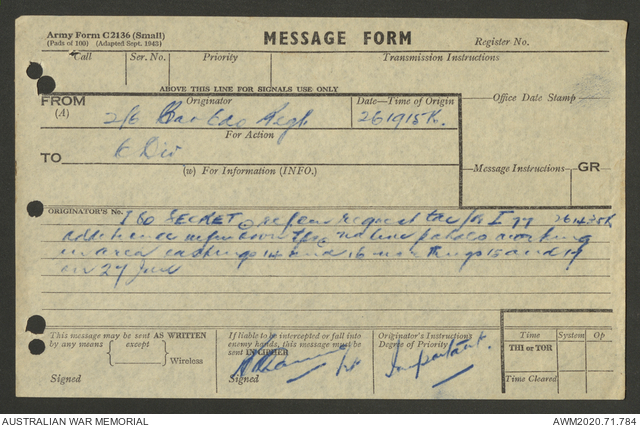 Army Form C2136 (Small)
(Pads of 100) (Adapted Sept. 1943)
MESSAGE FORM
Register No.
Call
Ser. No.
Priority
Transmission Instructions
ABOVE THIS LINE FOR SIGNALS USE ONLY
FROM
(A)
Originator
Date—Time of Origin
Office Date Stamp
2/6 Cav Cdo Regt
261915K.
For Action
TO
6 Div
(w) For Information (INFO.)
Message Instructions
GR
ORIGINATOR'S No.
I 80 SECRET refer request 261435K
no
in area eastings 14 and 16 northings 15 and 17
on 27 June
This message may be sent AS WRITTEN
by any means
except
Wireless
Signed
If liable to be intercepted or fall into
enemy hands, this message must be
sent IN CIPHER
Signed
Lt
Originator's Instructions
Degree of Priority
Important.
Time
System
Op
THI or TOR
Time Cleared
AUSTRALIAN WAR MEMORIAL
AWM2020.71.784